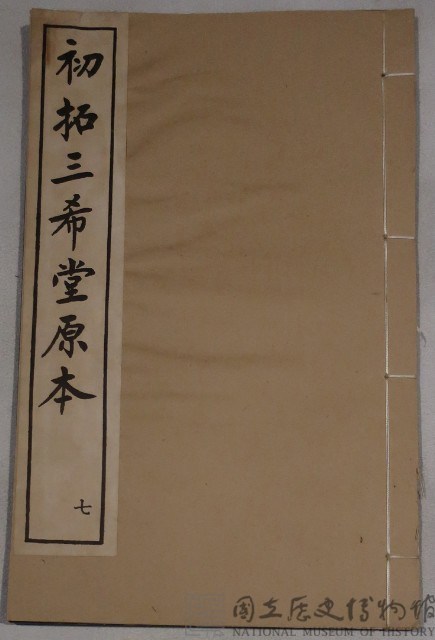 初拓三希堂原本
七
國立歷史博物館
NATIONAL MUSEUM OF HISTORY